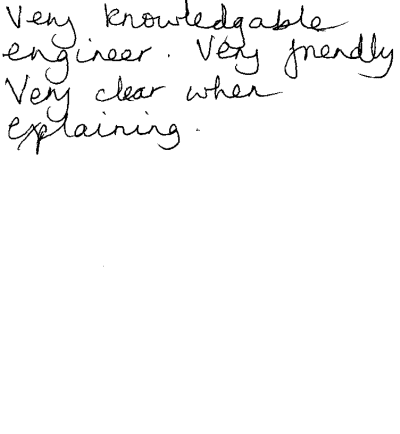 Very knowledgable
engineer. Very friendly
Very clear when
explaining.